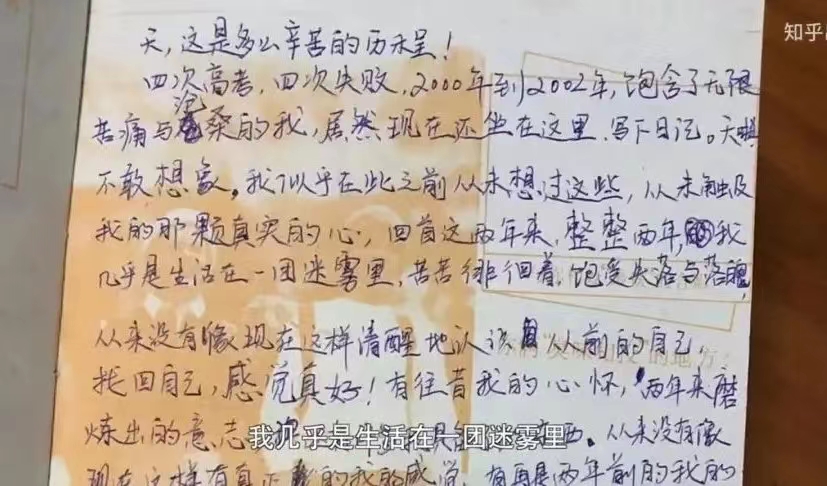 知乎
天,这是多么辛苦的历程!
四次高考,四次失败,2000年到2002年,饱含了无限
苦痛与沧桑的我,居然现在还坐在这里,写下日记。天哪
不敢想象。我似乎在此之前从未想过这些,从未触及
我的那颗真实的心,回首这两年来,整整两年,我
几乎是生活在一团迷雾里,苦苦徘徊着,饱受失落与落魄
从来没有像现在这样清醒地认识从前的自己,
找回自己,感觉真好!有往昔我的心怀,两年来磨
炼出的意志
从来没有像
我几乎是生活在一团迷雾里
现在这样有真正的我的感觉,两年前的我的